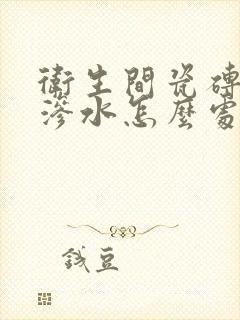 衛生間瓷磚
滲水怎麼處
錢豆